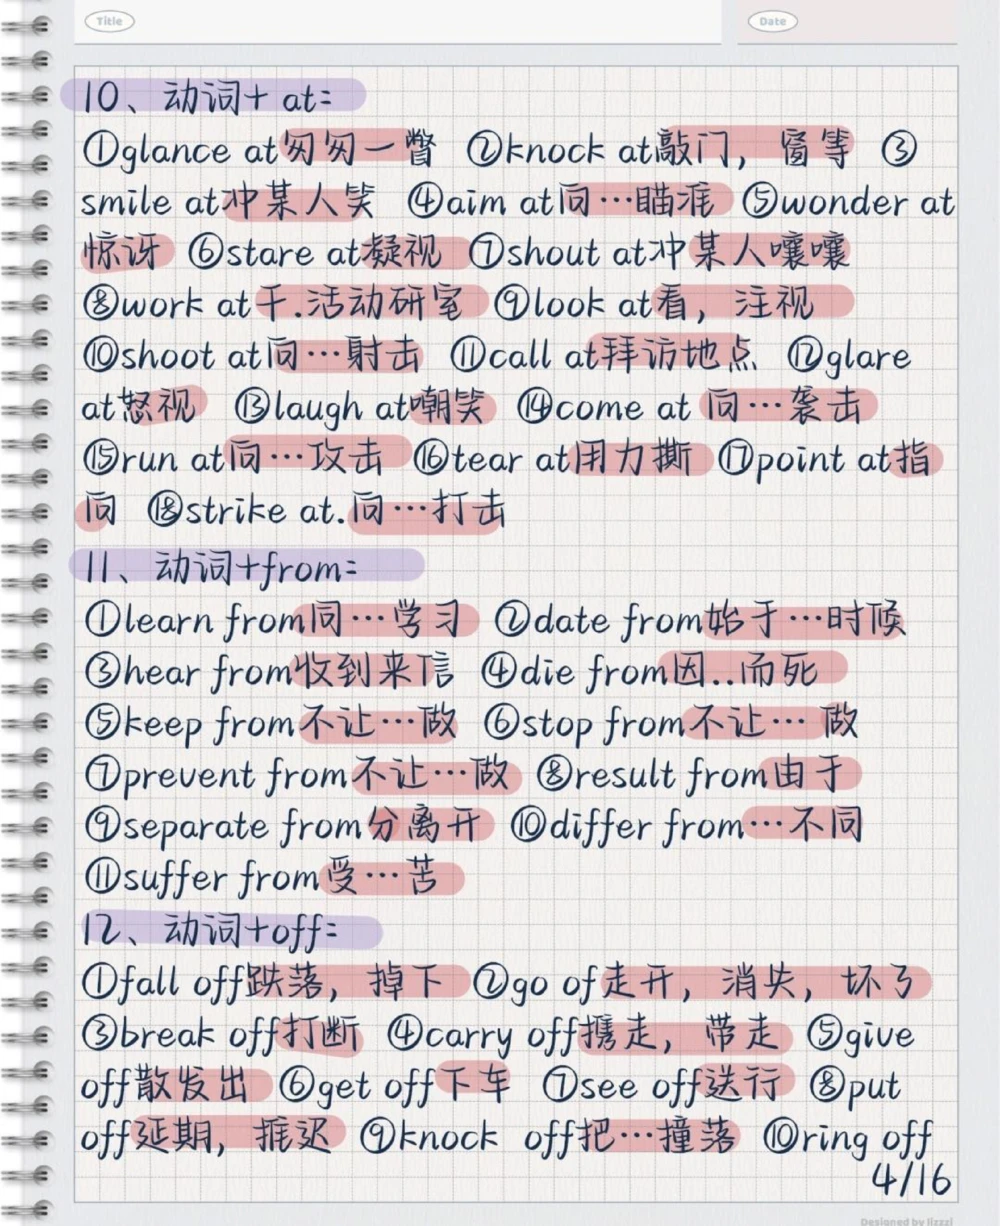 Title
Date
10、动词+ at:
①glance at匆匆一瞥 ②knock at敲门，窗等 ③
smile at冲某人笑 ④aim at向…瞄准 ⑤wonder at
惊讶 ⑥stare at凝视 ⑦shout at冲某人嚷嚷
⑧work at干.活动研究 ⑨look at看，注视
⑩shoot at向…射击 ⑪call at拜访地点 ⑫glare
at怒视 ⑬laugh at嘲笑 ⑭come at 向…袭击
⑮run at向…攻击 ⑯tear at用力撕 ⑰point at指
向 ⑱strike at.向…打击
11、动词+from:
①learn from向…学习 ②date from始于…时候
③hear from收到来信 ④die from因..而死
⑤keep from不让…做 ⑥stop from不让… 做
⑦prevent from不让…做 ⑧result from由于
⑨separate from分离开 ⑩differ from…不同
⑪suffer from受…苦
12、动词+off:
①fall off跌落，掉下 ②go of走开，消失，坏了
③break off打断 ④carry off携走，带走 ⑤give
off散发出 ⑥get off下车 ⑦see off送行 ⑧put
off延期，推迟 ⑨knock off把…撞落 ⑩ring off
4/16
Designed by lizzzi